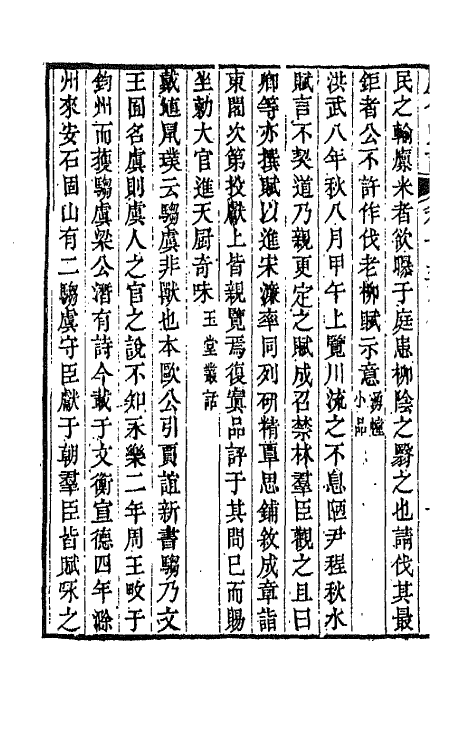 民之輸廩米者欲曝于庭患柳陰之翳之也請伐其最
鉅者公不許作伐老柳賦示意湧幢小品
洪武八年秋八月甲午上覽川流之不息陋尹程秋水
賦言不契道乃親更定之賦成召禁林羣臣觀之且曰
卿等亦撰賦以進宋濂率同列研精覃思鋪敘成章詣
東閣次第投獻上皆親覽焉復寘品評于其間已而賜
坐勑大官進天厨奇味玉堂叢話
戴埴鼠璞云騶虞非獸也本歐公引賈誼新書騶乃文
王囿名虞則虞人之官之說不知永樂二年周王畋于
鈞州而獲騶虞梁公潛有詩今載于文衡宣德四年滁
州來安石固山有二騶虞守臣獻于朝羣臣皆賦咏之